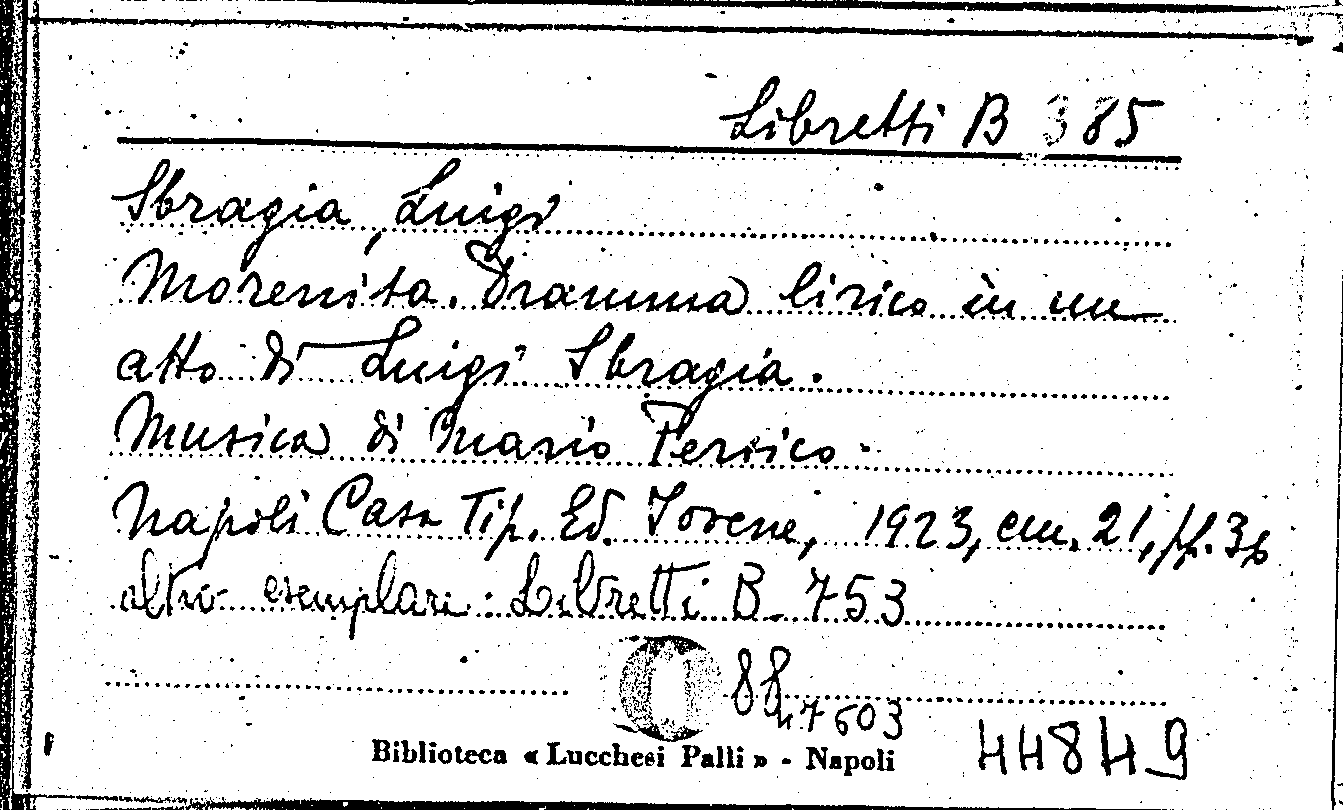 Libretti B 385
Sbragia, Luigi
Morenita. Dramma lirico in un
atto di Luigi Sbragia.
Musica di Mario Persico.
Napoli Casa Tip. Ed. Jovene, 1923, cm. 21, pp. 36
altro esemplare: Libretti B. 753
88
47603
Biblioteca « Lucchesi Palli » - Napoli
44849